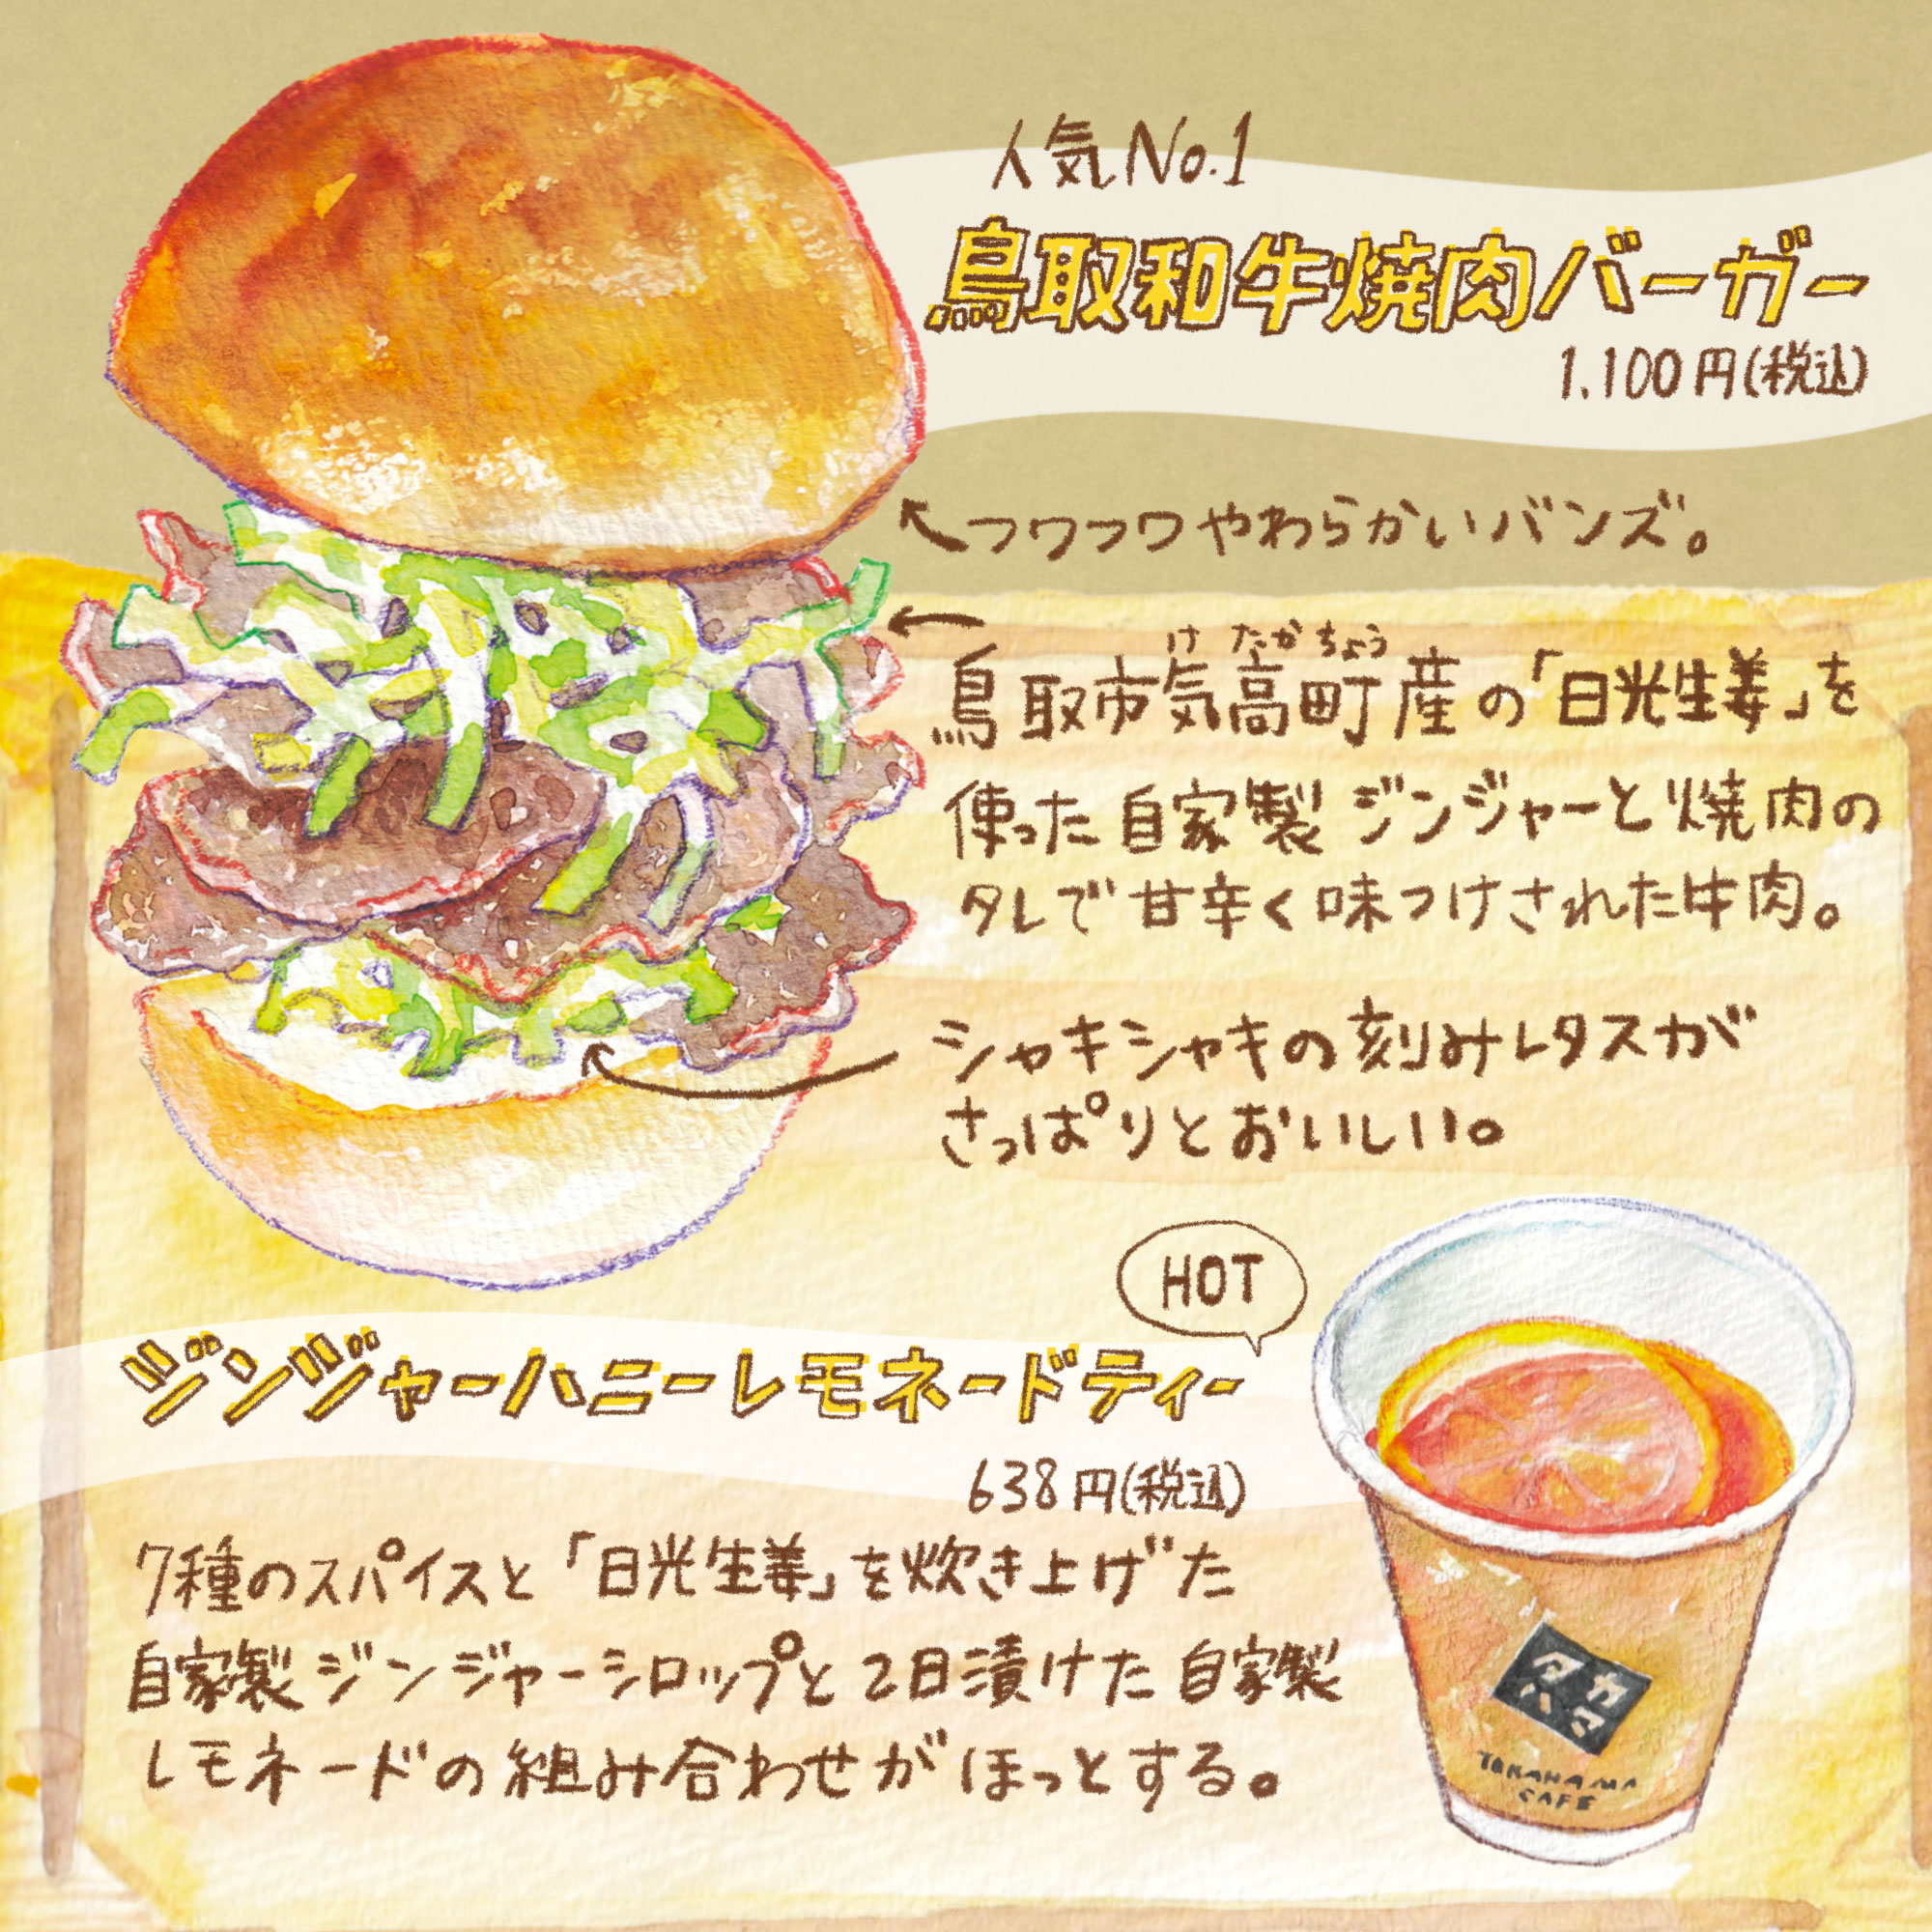 人気No.1
鳥取和牛焼肉バーガー
1.100円(税込)
フワフワやわらかいバンズ。
け たか ちょう
鳥取市気高町産の「日光生姜」を
使った自家製ジンジャーと焼肉の
タレで甘辛く味つけされた牛肉。
シャキシャキの刻みレタスが
さっぱりとおいしい。
HOT
ジンジャーハニーレモネードティー
638円(税込)
7種のスパイスと「日光生姜」を炊き上げた
自家製ジンジャーシロップと2日漬けた自家製
レモネードの組み合わせがほっとする。
タカ
ハマ
TAKAHAMA
CAFE